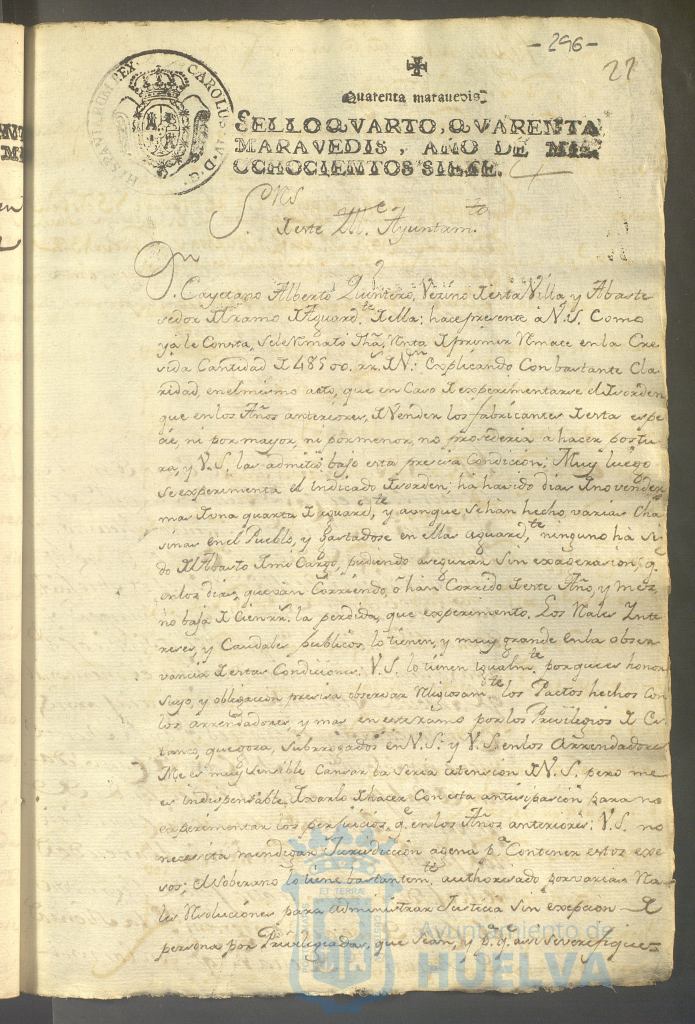 -296-
27
HISPANIARUM REX CAROLUS IV D. G.
Quarenta maravedis
SELLO QVARTO, QVARENTA
MARAVEDIS, AÑO DE MIL
OCHOCIENTOS SIETE.
S.res
Deste Ill.e Ayuntam.to
D.n Cayetano Alberto Quintero, Vezino desta Villa, y Abaste
sedor del ramo de Aguard.te de ella: hace presente a V.S. Como
ya le Consta, se le Remató en la Cre
sida Cantidad de 48500. rr. de V.n: explicando Con bastante Cla
ridad, en el mismo acto, que en Caso de experimentarse el desorden
que en los Años anteriores, de Vender los fabricantes de esta espe
cie, ni por mayor, ni por menor, no prosederia a hacer postu
ra, y V.S. las admitio bajo esta precisa Condicion; Muy luego
se experimenta el indicado desorden; ha havido dias de no vender
mas de una quarta de aguard.te, y aunque se han hecho varias
en el Pueblo, y gastadose en ellas aguard.te, ninguno há si
do del Abasto de mi Cargo, pudiendo asegurar sin exageracion, q.e
en los dias, que van Corriendo, o han Corrido de este Año, y mes,
no baja de Cien rr. la perdida, que experimento. Los Rales Inte
reses, y Caudales publicos, lo tienen, y muy grande en la obser
vancia de estas Condiciones: V.S. lo tienen igualm.te, porque es honor
suyo, y obligacion precisa observar Religiosam.te los Pactos hechos Con
los arrendadores, y mas en este ramo por los Privilegios de Es
tanco, que goza, subrrogados en V.S.: y V.S. en los Arrendadores
Me es muy sensible Causar la seria atension de V.S. pero me
es indispensable dexarlo de hacer Con esta antisipasion para no
experimentar los perjuicios, q.e en los Años anteriores: V.S. no
necesita mendigar Jurisdiccion agena p.a Contener estos exse
sos; el Soberano lo tiene bastantem.te authorisado por varias Rea
les Resoluciones para administrar Justicia sin exepcion de
persona por Privilegiadas, que sean, y p.a q.e asi se verifique=
ET TERRÆ
Ayuntamiento de
HUELVA